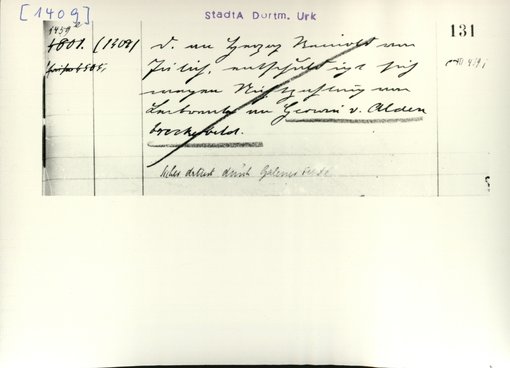 [1409]
StadtA Dortm. Urk
131
1451
4801. (1409) D. an Herzog Reinold von
Jülich, entschuldigt sich
wegen Nichtzahlung von
Leibrente an Georg v. Alden
breckefeld.
durch